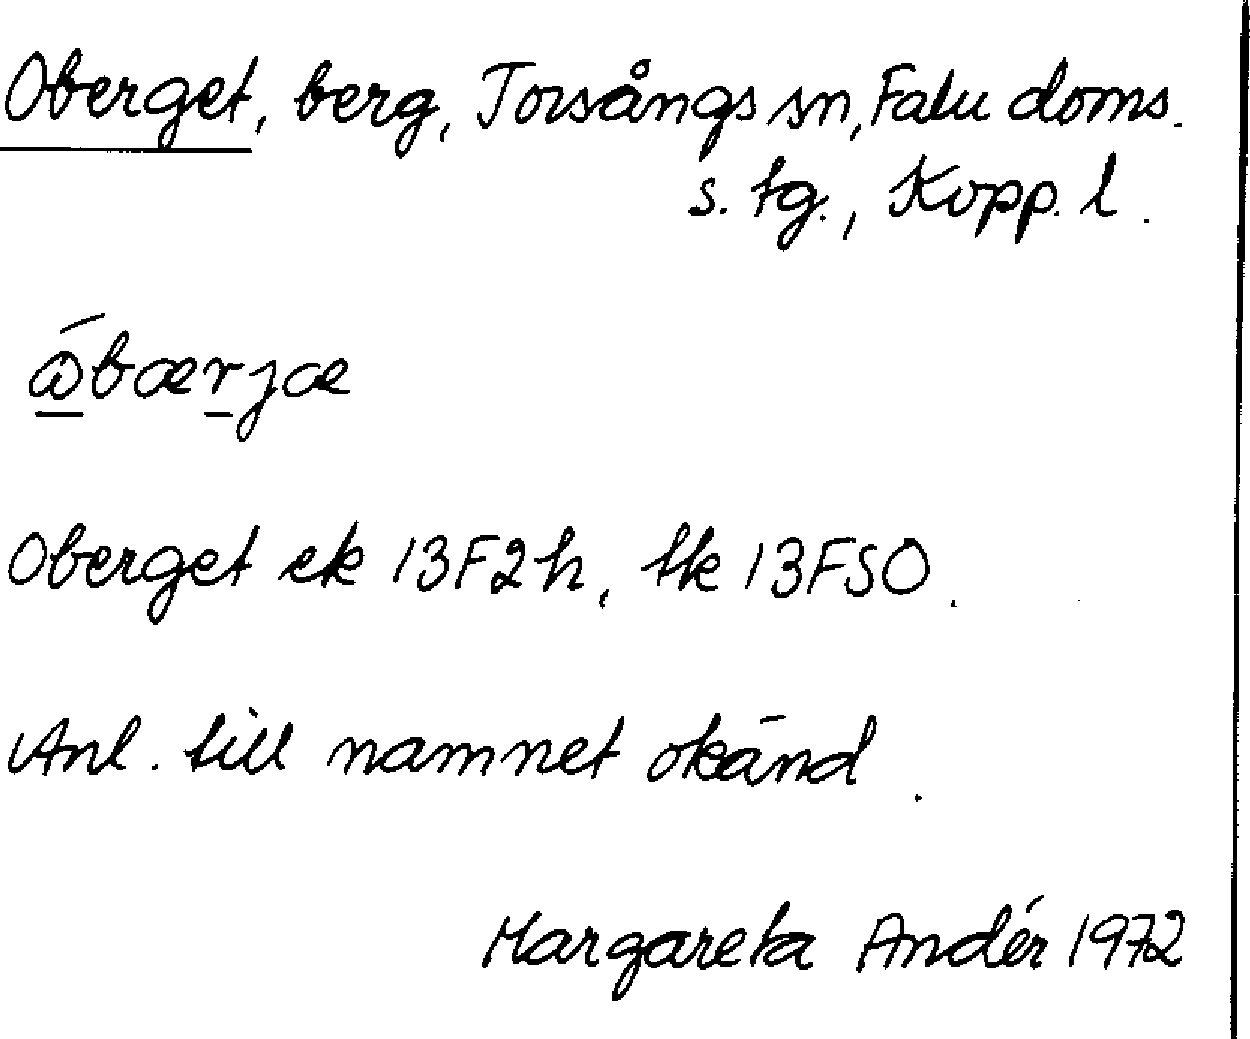 Oberget, berg, Torsångs sn, Falu doms.
s. tg., Kopp. l.
ώbærjæ
Oberget ek 13F2h, tk 13FSO.
Anl. till namnet okänd.
Margareta Andér 1972